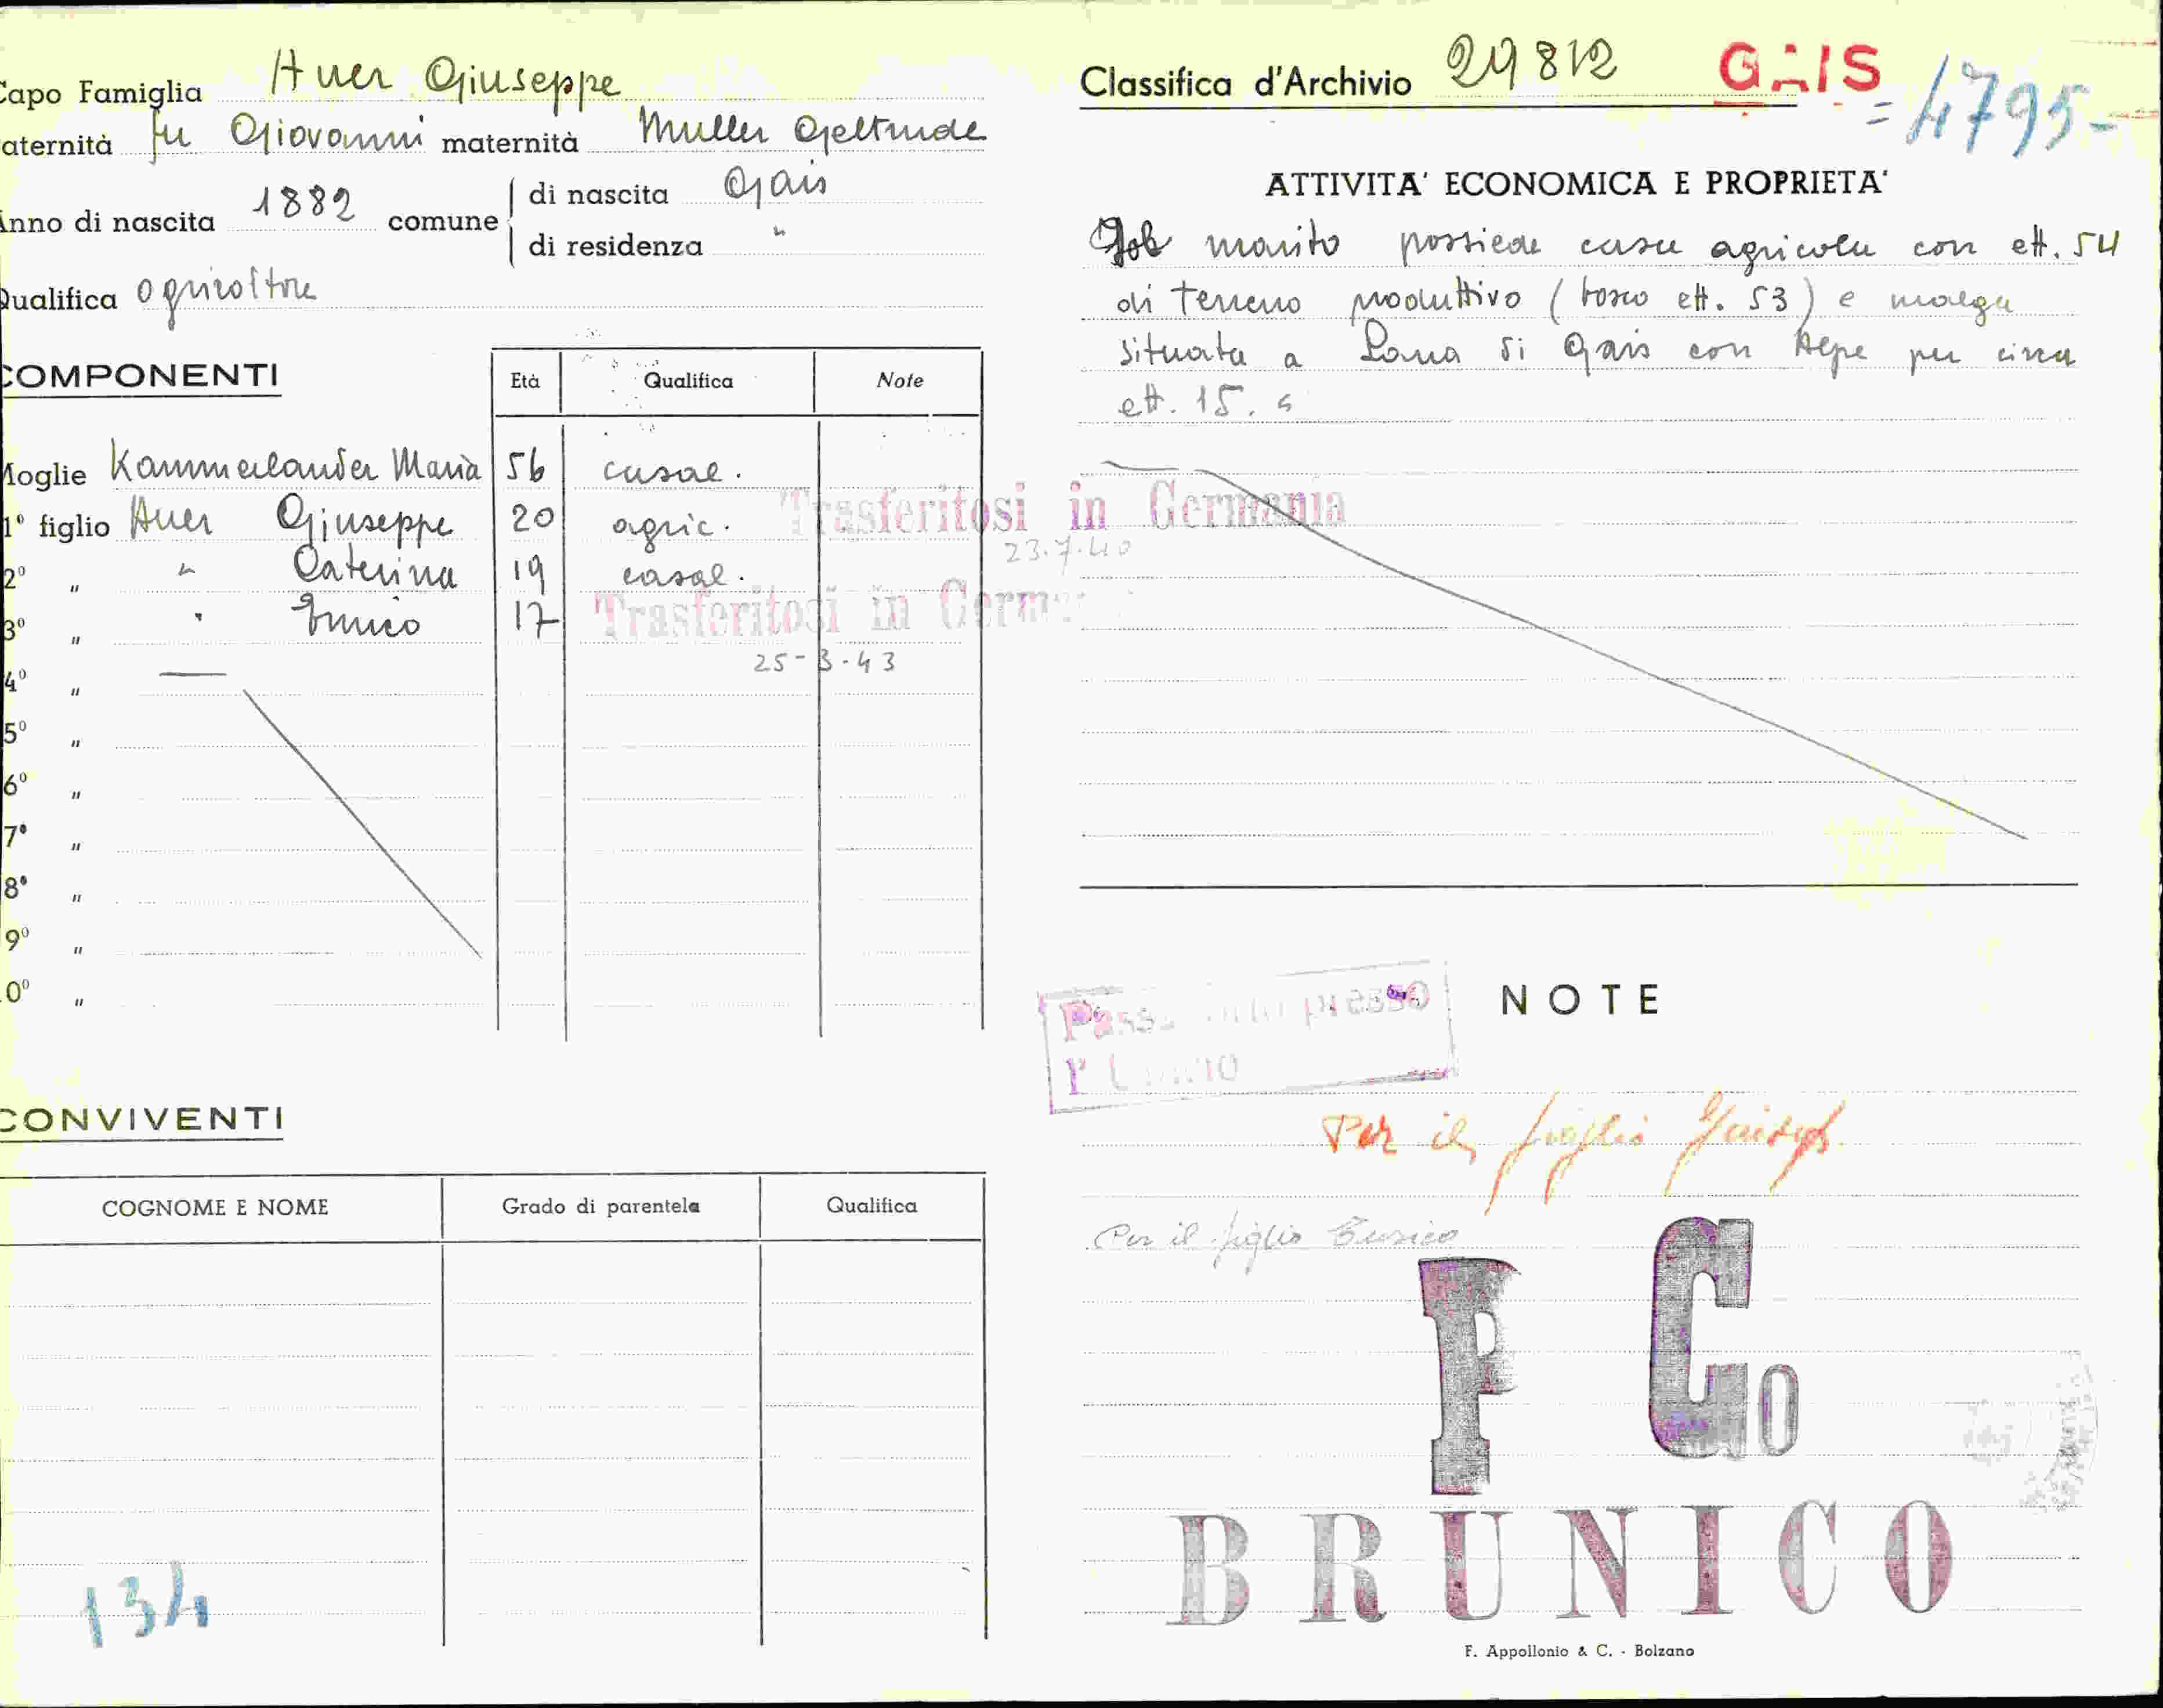 Capo Famiglia Auer Giuseppe
aternità fu Giovanni maternità Muller Geltrude
Anno di nascita 1882 comune di nascita Gais
di residenza "
Qualifica agricoltore
COMPONENTI Età Qualifica Note
Moglie Kammerlander Maria 56 casal.
1º figlio Auer Giuseppe 20 agric. Trasferitosi in Germania
23.7.40
2º " " Caterina 19 casal.
3º " " Enrico 17 Trasferitosi in Germa
25-3-43
4º "
5º "
6º "
7º "
8º "
9º "
0º "
CONVIVENTI
COGNOME E NOME Grado di parentela Qualifica
134
Classifica d'Archivio 29812 GAIS
= 4795-
ATTIVITA' ECONOMICA E PROPRIETA'
marito possiede casa agricola con ett. 54
di terreno produttivo (bosco ett. 53) e malga
situata a di Gais con Alpe per circa
ett. 15.
NOTE
presso
Per il figlio
Per il figlio Enrico
P Co
BRUNICO
F. Appollonio & C. - Bolzano